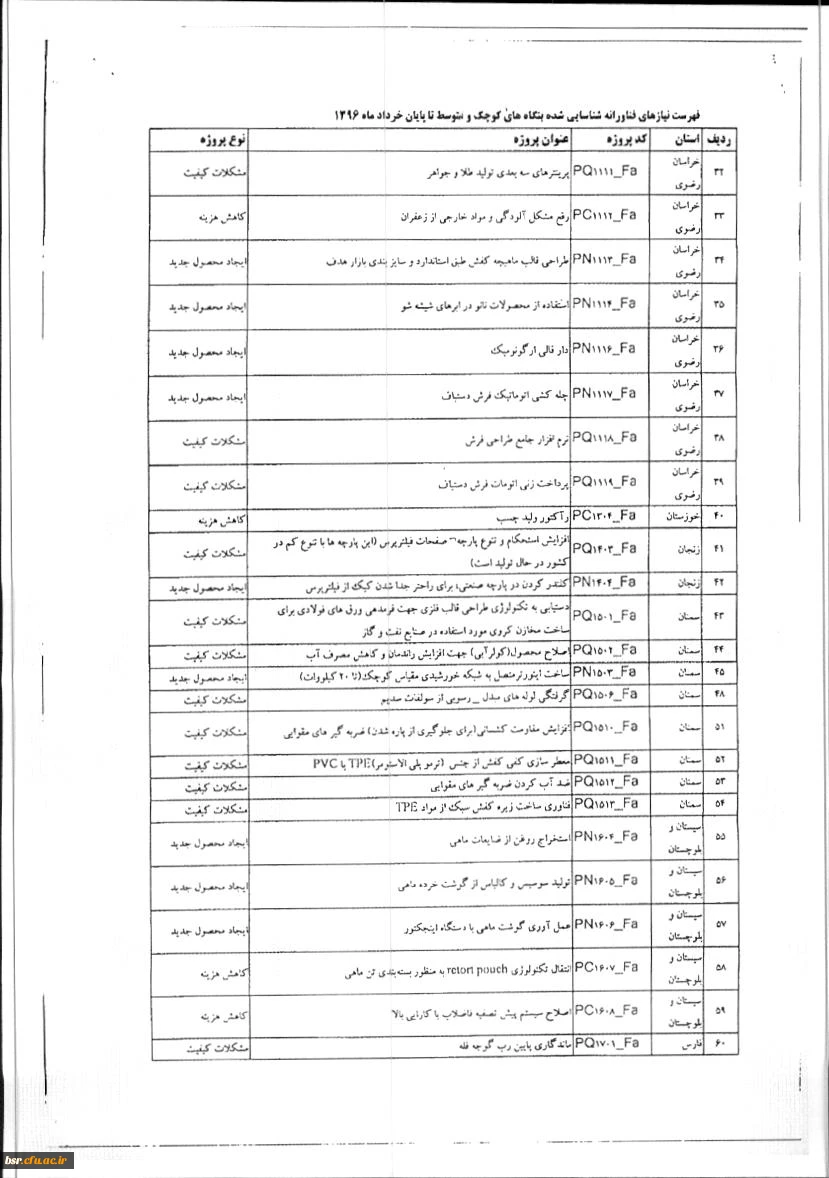 فهرست نیازهای فناورانه شناسایی شده بنگاه های کوچک و متوسط تا پایان خرداد ماه ۱۳۹۶
ردیف استان کد پروژه عنوان پروژه نوع پروژه
۳۲ خراسان رضوی PQ۱۱۱۱_Fa پرینترهای سه بعدی تولید طلا و جواهر مشکلات کیفیت
۳۳ خراسان رضوی PC۱۱۱۲_Fa رفع مشکل آلودگی و مواد خارجی از زعفران کاهش هزینه
۳۴ خراسان رضوی PN۱۱۱۳_Fa طراحی قالب ماهیچه کفش طبق استاندارد و سایز بندی بازار هدف ایجاد محصول جدید
۳۵ خراسان رضوی PN۱۱۱۴_Fa استفاده از محصولات نانو در ابرهای شیشه شو ایجاد محصول جدید
۳۶ خراسان رضوی PN۱۱۱۶_Fa دار قالی ارگونومیک ایجاد محصول جدید
۳۷ خراسان رضوی PN۱۱۱۷_Fa چله کشی اتوماتیک فرش دستباف ایجاد محصول جدید
۳۸ خراسان رضوی PQ۱۱۱۸_Fa نرم افزار جامع طراحی فرش مشکلات کیفیت
۳۹ خراسان رضوی PQ۱۱۱۹_Fa پرداخت زنی اتومات فرش دستباف مشکلات کیفیت
۴۰ خوزستان PC۱۳۰۴_Fa رآکتور ولید چسب کاهش هزینه
۴۱ زنجان PQ۱۴۰۳_Fa افزایش استحکام و تنوع پارچه صفحات فیلترپرس (این پارچه ها با تنوع کم در
کشور در حال تولید است) مشکلات کیفیت
۴۲ زنجان PN۱۴۰۴_Fa کلندر کردن در پارچه صنعتی، برای راحتر جدا شدن کیک از فیلترپرس ایجاد محصول جدید
۴۳ سمنان PQ۱۵۰۱_Fa دستیابی به تکنولوژی طراحی قالب فلزی جهت فرمدهی ورق های فولادی برای
ساخت مخازن کروی مورد استفاده در صنایع نفت و گاز مشکلات کیفیت
۴۴ سمنان PQ۱۵۰۲_Fa اصلاح محصول(کولرآبی) جهت افزایش راندمان و کاهش مصرف آب مشکلات کیفیت
۴۵ سمنان PN۱۵۰۳_Fa ساخت اینورترمتصل به شبکه خورشیدی مقیاس کوچک(تا ۲۰ کیلووات) ایجاد محصول جدید
۴۸ سمنان PQ۱۵۰۶_Fa گرفتگی لوله های مبدل _ رسوبی از سولفات سدیم مشکلات کیفیت
۵۱ سمنان PQ۱۵۱۰_Fa افزایش مقاومت کشسانی(برای جلوگیری از پاره شدن) ضربه گیر های مقوایی مشکلات کیفیت
۵۲ سمنان PQ۱۵۱۱_Fa معطر سازی کفی کفش از جنس (ترمو پلی الاستومر)TPE یا PVC مشکلات کیفیت
۵۳ سمنان PQ۱۵۱۲_Fa ضد آب کردن ضربه گیر های مقوایی مشکلات کیفیت
۵۴ سمنان PQ۱۵۱۳_Fa فناوری ساخت زیره کفش سبک از مواد TPE مشکلات کیفیت
۵۵ سیستان و بلوچستان PN۱۶۰۴_Fa استخراج روغن از ضایعات ماهی ایجاد محصول جدید
۵۶ سیستان و بلوچستان PN۱۶۰۵_Fa تولید سوسیس و کالباس از گوشت خرده ماهی ایجاد محصول جدید
۵۷ سیستان و بلوچستان PN۱۶۰۶_Fa عمل آوری گوشت ماهی با دستگاه اینجکتور ایجاد محصول جدید
۵۸ سیستان و بلوچستان PC۱۶۰۷_Fa انتقال تکنولوژی retort pouch به منظور بسته‌بندی تن ماهی کاهش هزینه
۵۹ سیستان و بلوچستان PC۱۶۰۸_Fa اصلاح سیستم پیش تصفیه فاضلاب با کارایی بالا کاهش هزینه
۶۰ فارس PQ۱۷۰۱_Fa ماندگاری پایین رب گوجه فله مشکلات کیفیت
bsr.cfu.ac.ir